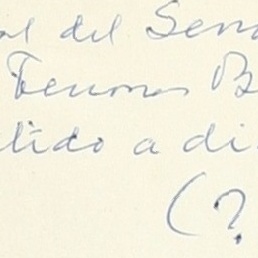 al del Sen
Tenemos B
tido a di
(?